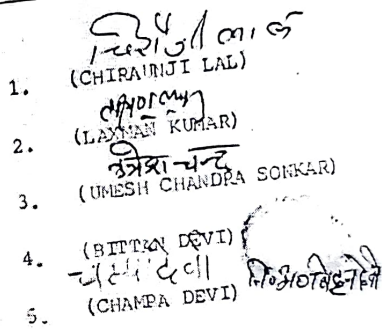 चिरौंजी लाल
1. (CHIRAUNJI LAL)
2. (LAXMAN KUMAR)
उमेश चन्द्र
3. (UMESH CHANDRA SONKAR)
4. (BITTAN DEVI)
चम्पा देवी
5. (CHAMPA DEVI)